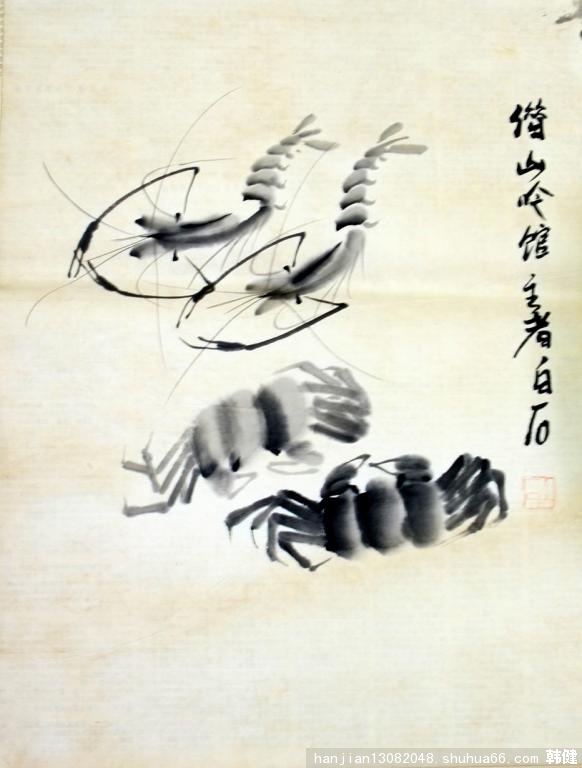 借山吟馆主者白石
hanjian13082048.shuhua66.com 韩健